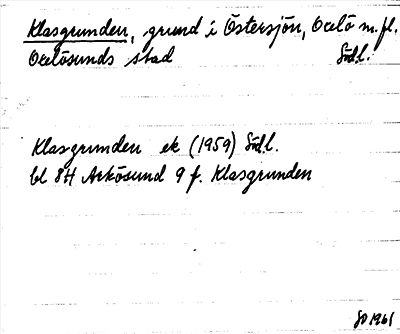 Klasgrunden, grund i Östersjön, Oxelö m.fl.
Oxelösunds stad Södl.
Klasgrunden ek (1959) Södl.
bl 8H Arkösund 9 f. Klasgrunden
SO 1961